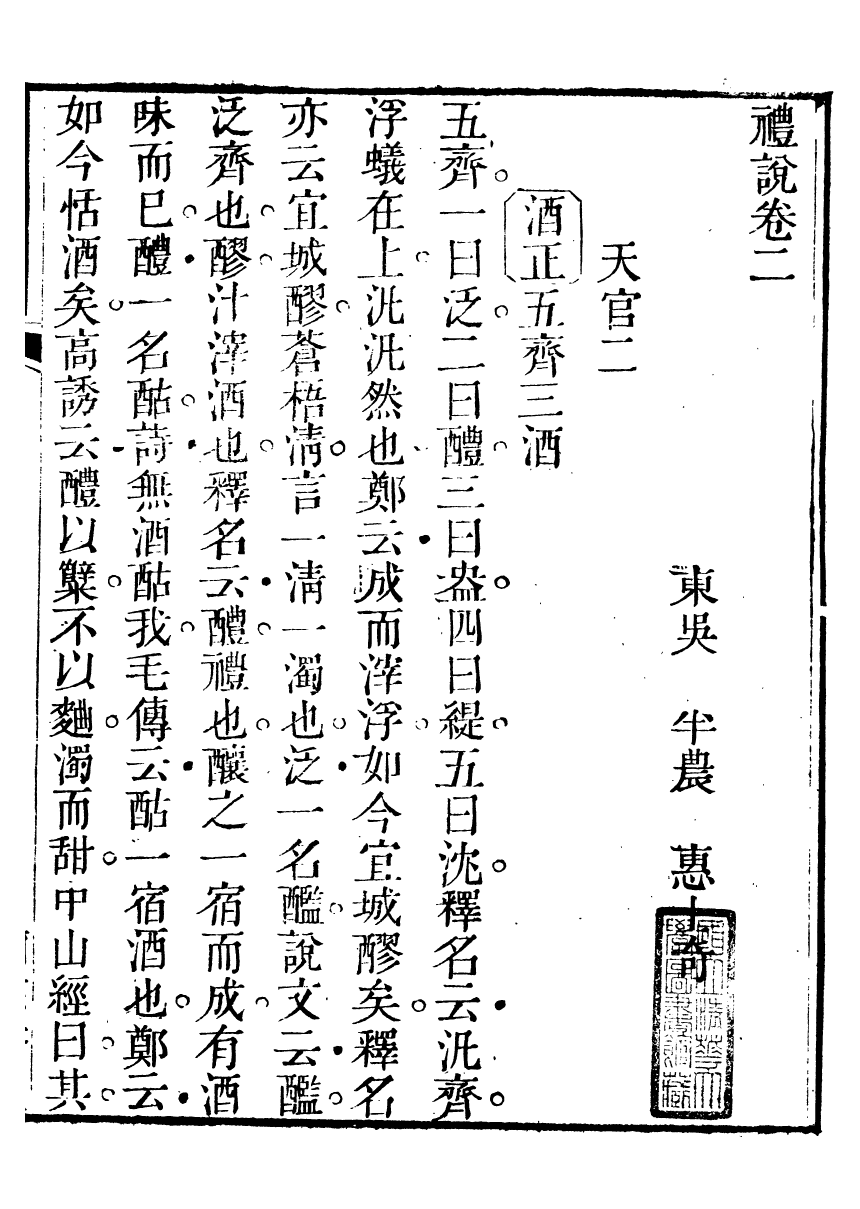 禮說卷二
東吳　半農　惠士奇
天官二
酒正五齊三酒
五齊一曰泛二曰醴三曰盎四曰緹五曰沈釋名云汎齊
浮蟻在上汎汎然也鄭云成而滓浮如今宜城醪矣釋名
亦云宜城醪蒼梧淸言一淸一濁也泛一名醯說文云醯
泛齊也醪汁滓酒也釋名云醴禮也釀之一宿而成有酒
味而已醴一名酤詩無酒酤我毛傳云酤一宿酒也鄭云
如今恬酒矣高誘云醴以櫱不以麯濁而甜中山經曰其